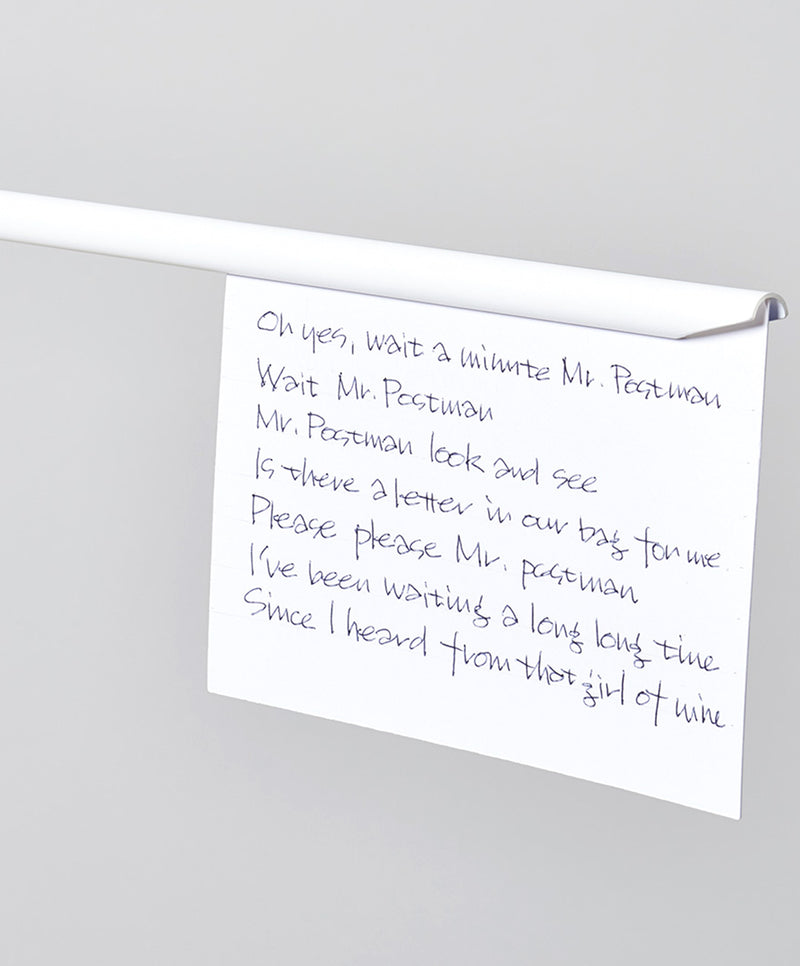 Oh yes, wait a minute Mr. Postman
Wait Mr. Postman
Mr. Postman look and see
Is there a letter in our bag for me
Please please Mr. postman
I've been waiting a long long time
Since I heard from that girl of mine